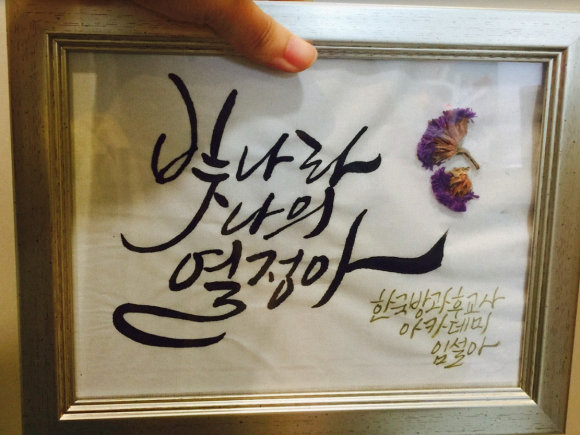 빛나라
나의
열정아
한국방과후교사
아카데미
임설아